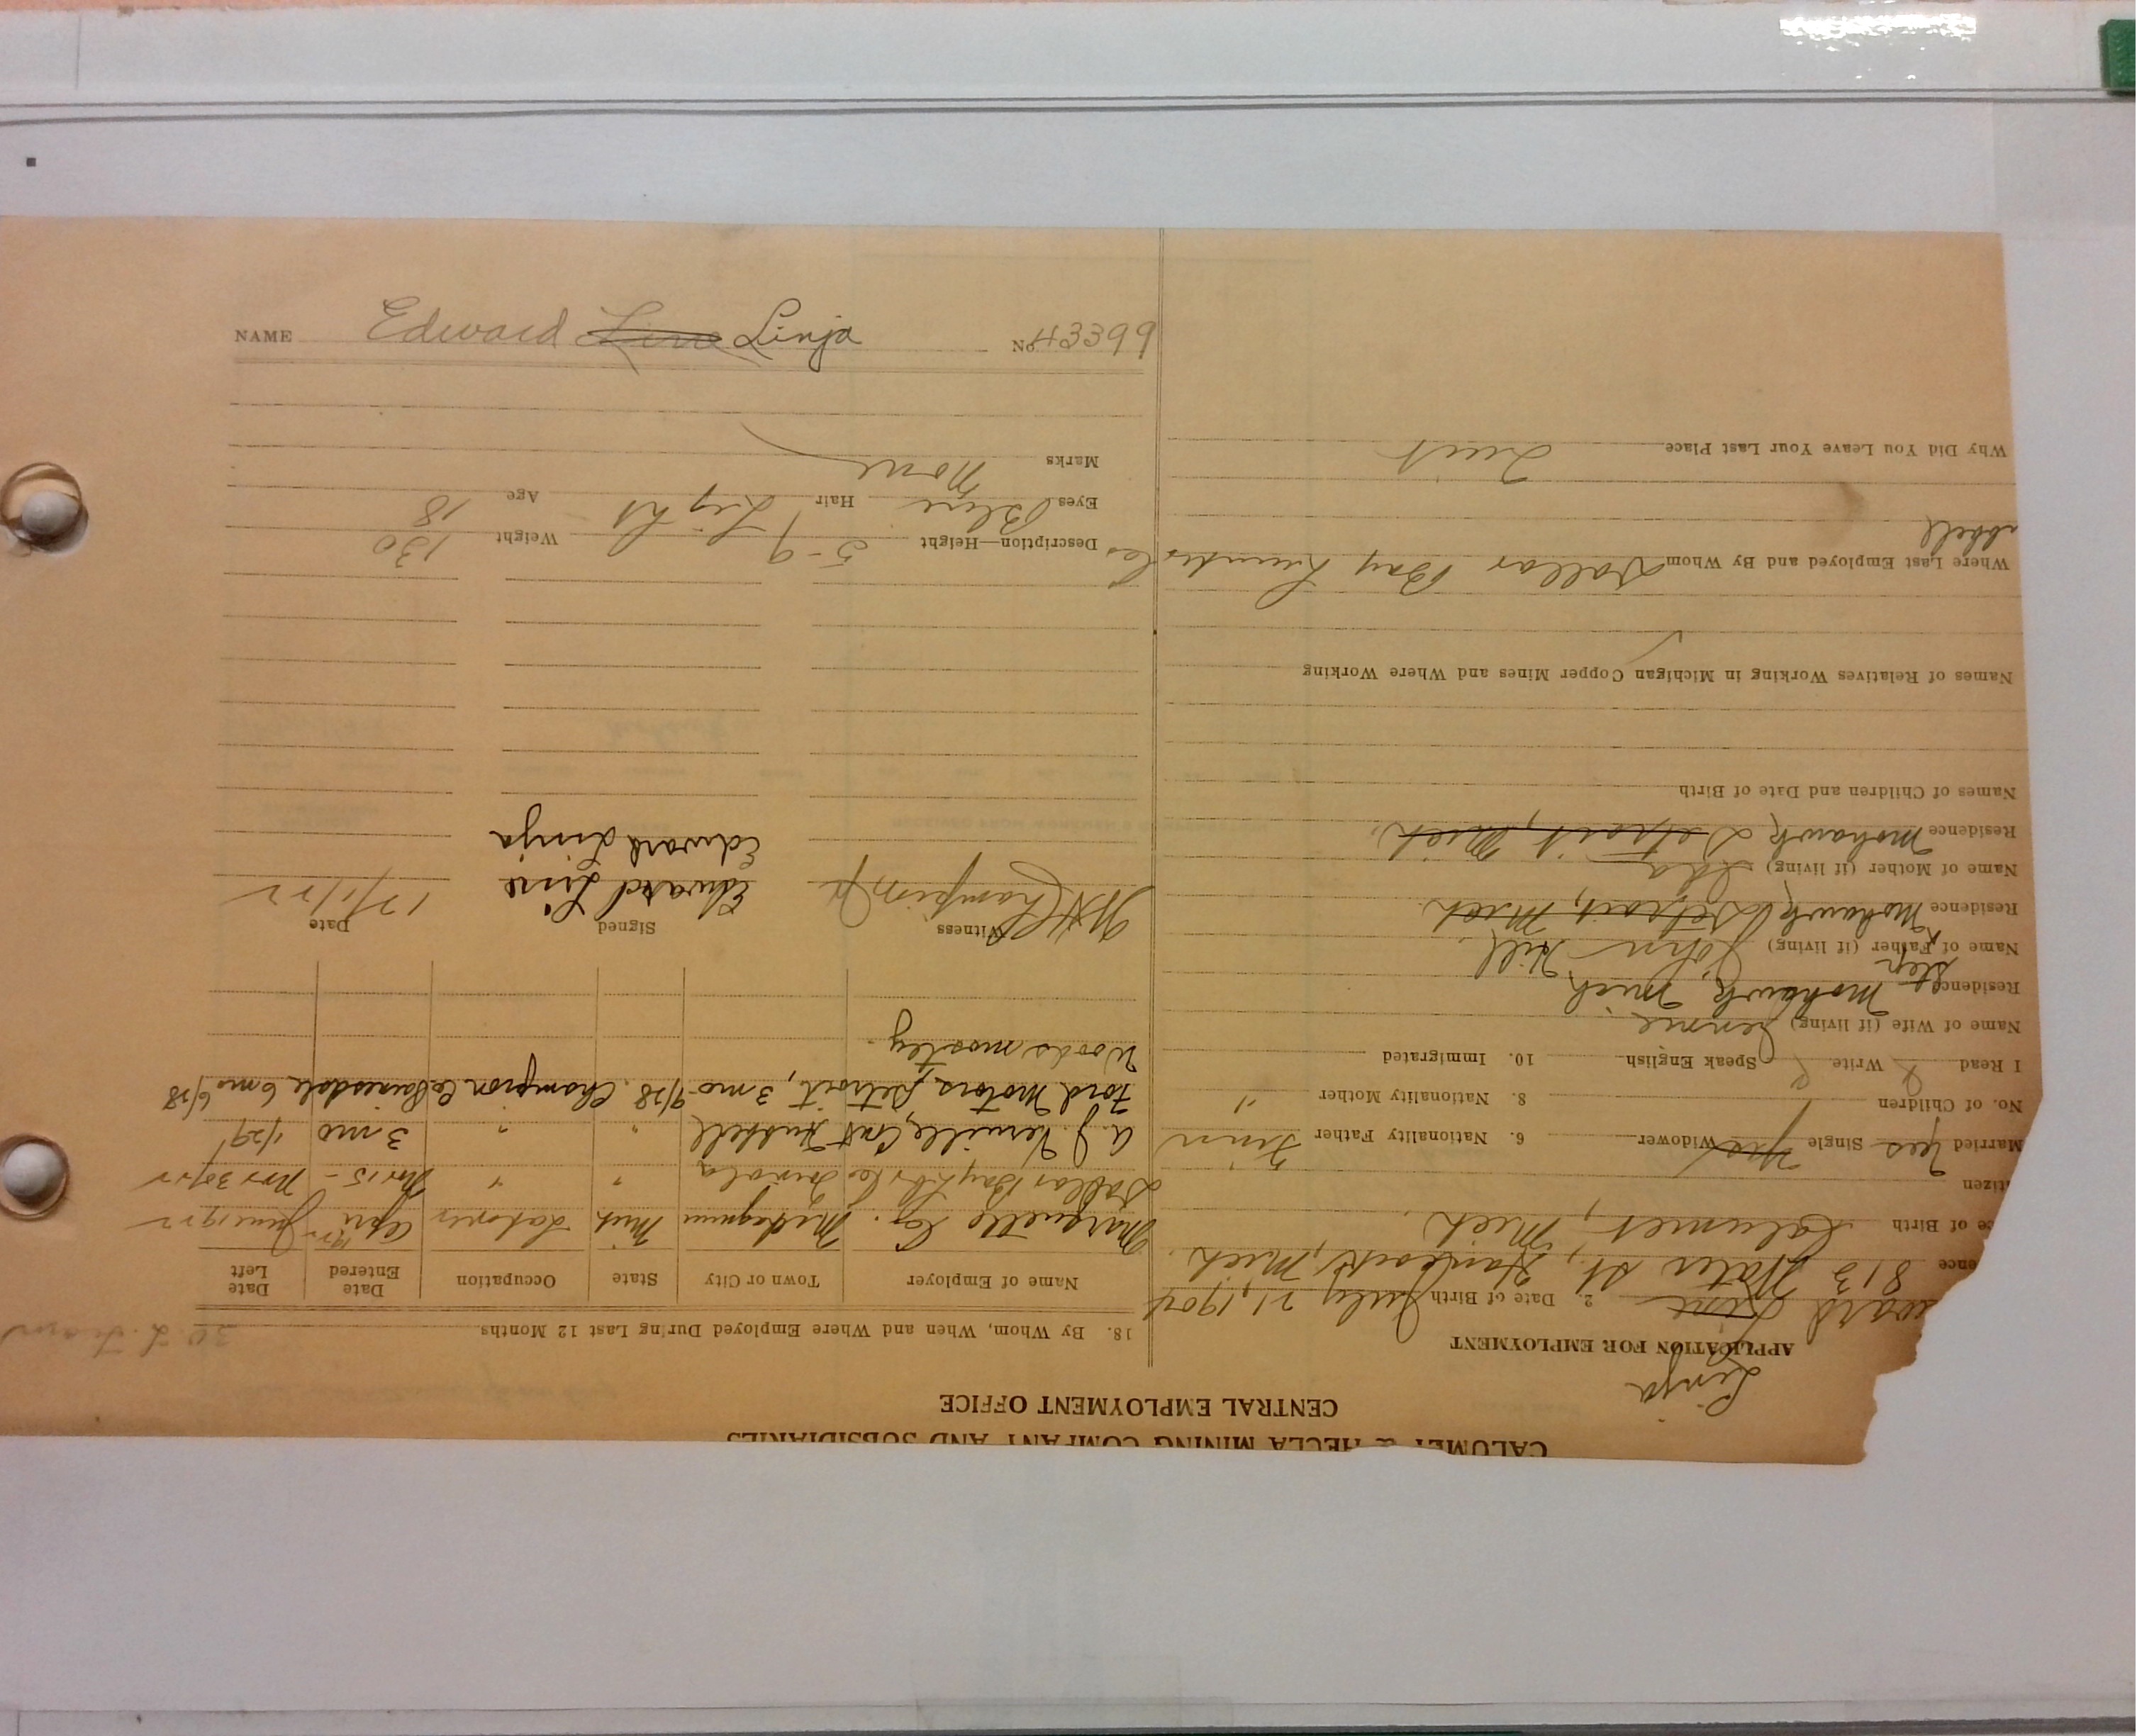 CALUMET & HECLA MINING COMPANY AND SUBSIDIARIES
CENTRAL EMPLOYMENT OFFICE
Linja
APPLICATION FOR EMPLOYMENT
ward Line 2. Date of Birth July 21, 1904
ence 813 Water St., Hancock, Mich.
ce of Birth Calumet, Mich.
itizen
Married Yes Single Widower 6. Nationality Father Finn
No. of Children 8. Nationality Mother "
I Read Write Speak English 10. Immigrated
Name of Wife (if living) Jennie
Residence Mohawk, Mich
step
Name of Father (if living) John Hill
Residence Mohawk Detroit, Mich.
Name of Mother (if living) Ida
Residence Mohawk Detroit, Mich.
Names of Children and Date of Birth
Names of Relatives Working in Michigan Copper Mines and Where Working
Where Last Employed and By Whom Dollar Bay Lumber Co
bbell
Why Did You Leave Your Last Place Quit
18. By Whom, When and Where Employed During Last 12 Months
Name of Employer Town or City State Occupation Date Entered Date Left
Marquette Co. Mich Laborer Apr 1922 June 1922
Dollar Bay Lbr Co " " Nov 15 - Nov 30/22
A. J. Verville, Cont Hubbell " " 3 mo 1/29
Ford Motors, Detroit, 3 mo - 9/28. Champion Co Painesdale 6 mo 6/28
Woods mostly.
Witness Signed Date
W H Champion Jr Edward Line 12/1/22
Edward Linja
Description—Height 5-9 Weight 130
Eyes Blue Hair Light Age 18
Marks None
NAME Edward Line Linja No. 43399